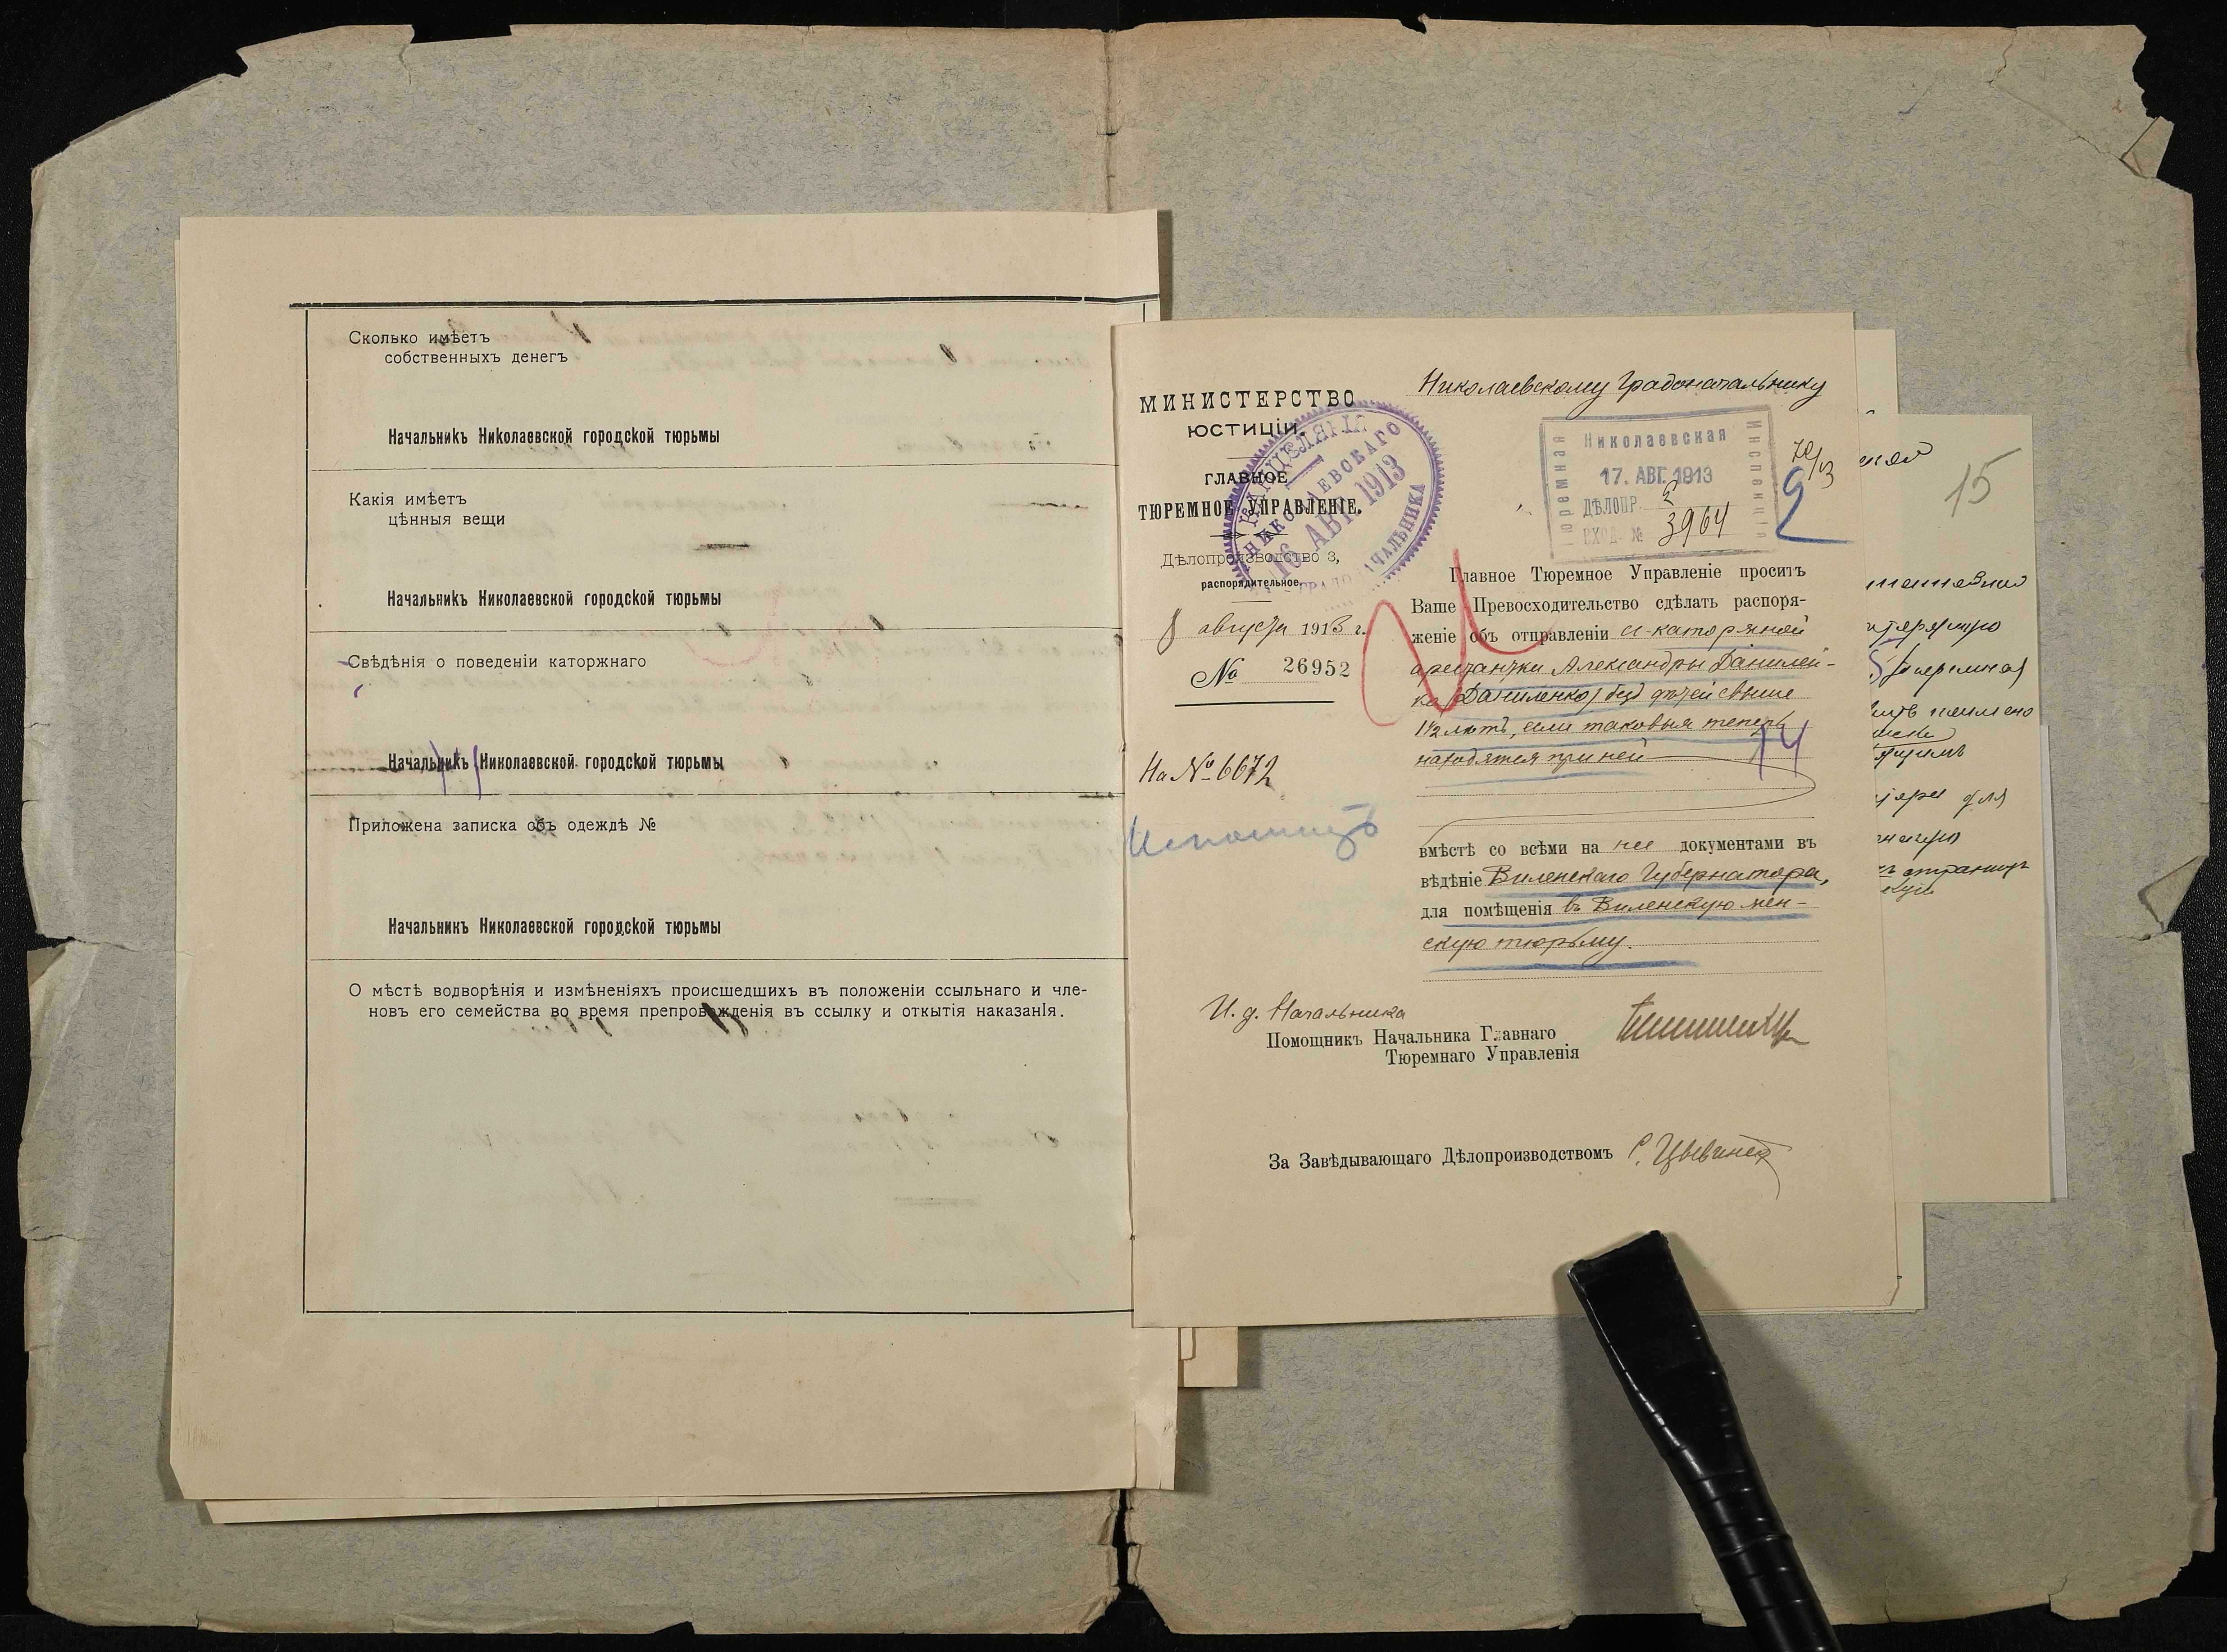 Сколько имѣетъ
собственныхъ денегъ
Начальникъ Николаевской городской тюрьмы
Какія имѣетъ
цѣнныя вещи
Начальникъ Николаевской городской тюрьмы
Свѣдѣнія о поведеніи каторжнаго
Начальникъ Николаевской городской тюрьмы
Приложена записка объ одеждѣ №
Начальникъ Николаевской городской тюрьмы
О мѣстѣ водворѣнія и измѣненіяхъ происшедшихъ въ положеніи ссыльнаго и чле-
новъ его семейства во время препровожденія въ ссылку и открытія наказанія.
МИНИСТЕРСТВО
ЮСТИЦІИ.
ГЛАВНОЕ
ТЮРЕМНОЕ УПРАВЛЕНІЕ.
Дѣлопроизводство 3,
распорядительное
8 августа 1913 г.
№ 26952
На № 6672
Исполнить
КАНЦЕЛЯРІЯ
НИКОЛАЕВСКАГО
16 АВГ. 1913
ГРАДОНАЧАЛЬНИКА
Николаевскому Градоначальнику
Тюремная
Николаевская
Инспекція
17. АВГ. 1913
ДѢЛОПР. 2
ВХОД. № 3964
2
Главное Тюремное Управленіе проситъ
Ваше Превосходительство сдѣлать распоря-
женіе объ отправленіи с-каторжной
арестантки Александры Данилей-
ко (Даниленко) безъ дѣтей свыше
1½ лѣтъ, если таковыя теперь
находятся при ней
14
вмѣстѣ со всѣми на нее документами въ
вѣдѣніе Виленскаго Губернатора,
для помѣщенія въ Виленскую жен-
скую тюрьму.
И. д. Начальника
Помощникъ Начальника Главнаго
Тюремнаго Управленія
За Завѣдывающаго Дѣлопроизводствомъ
15
для